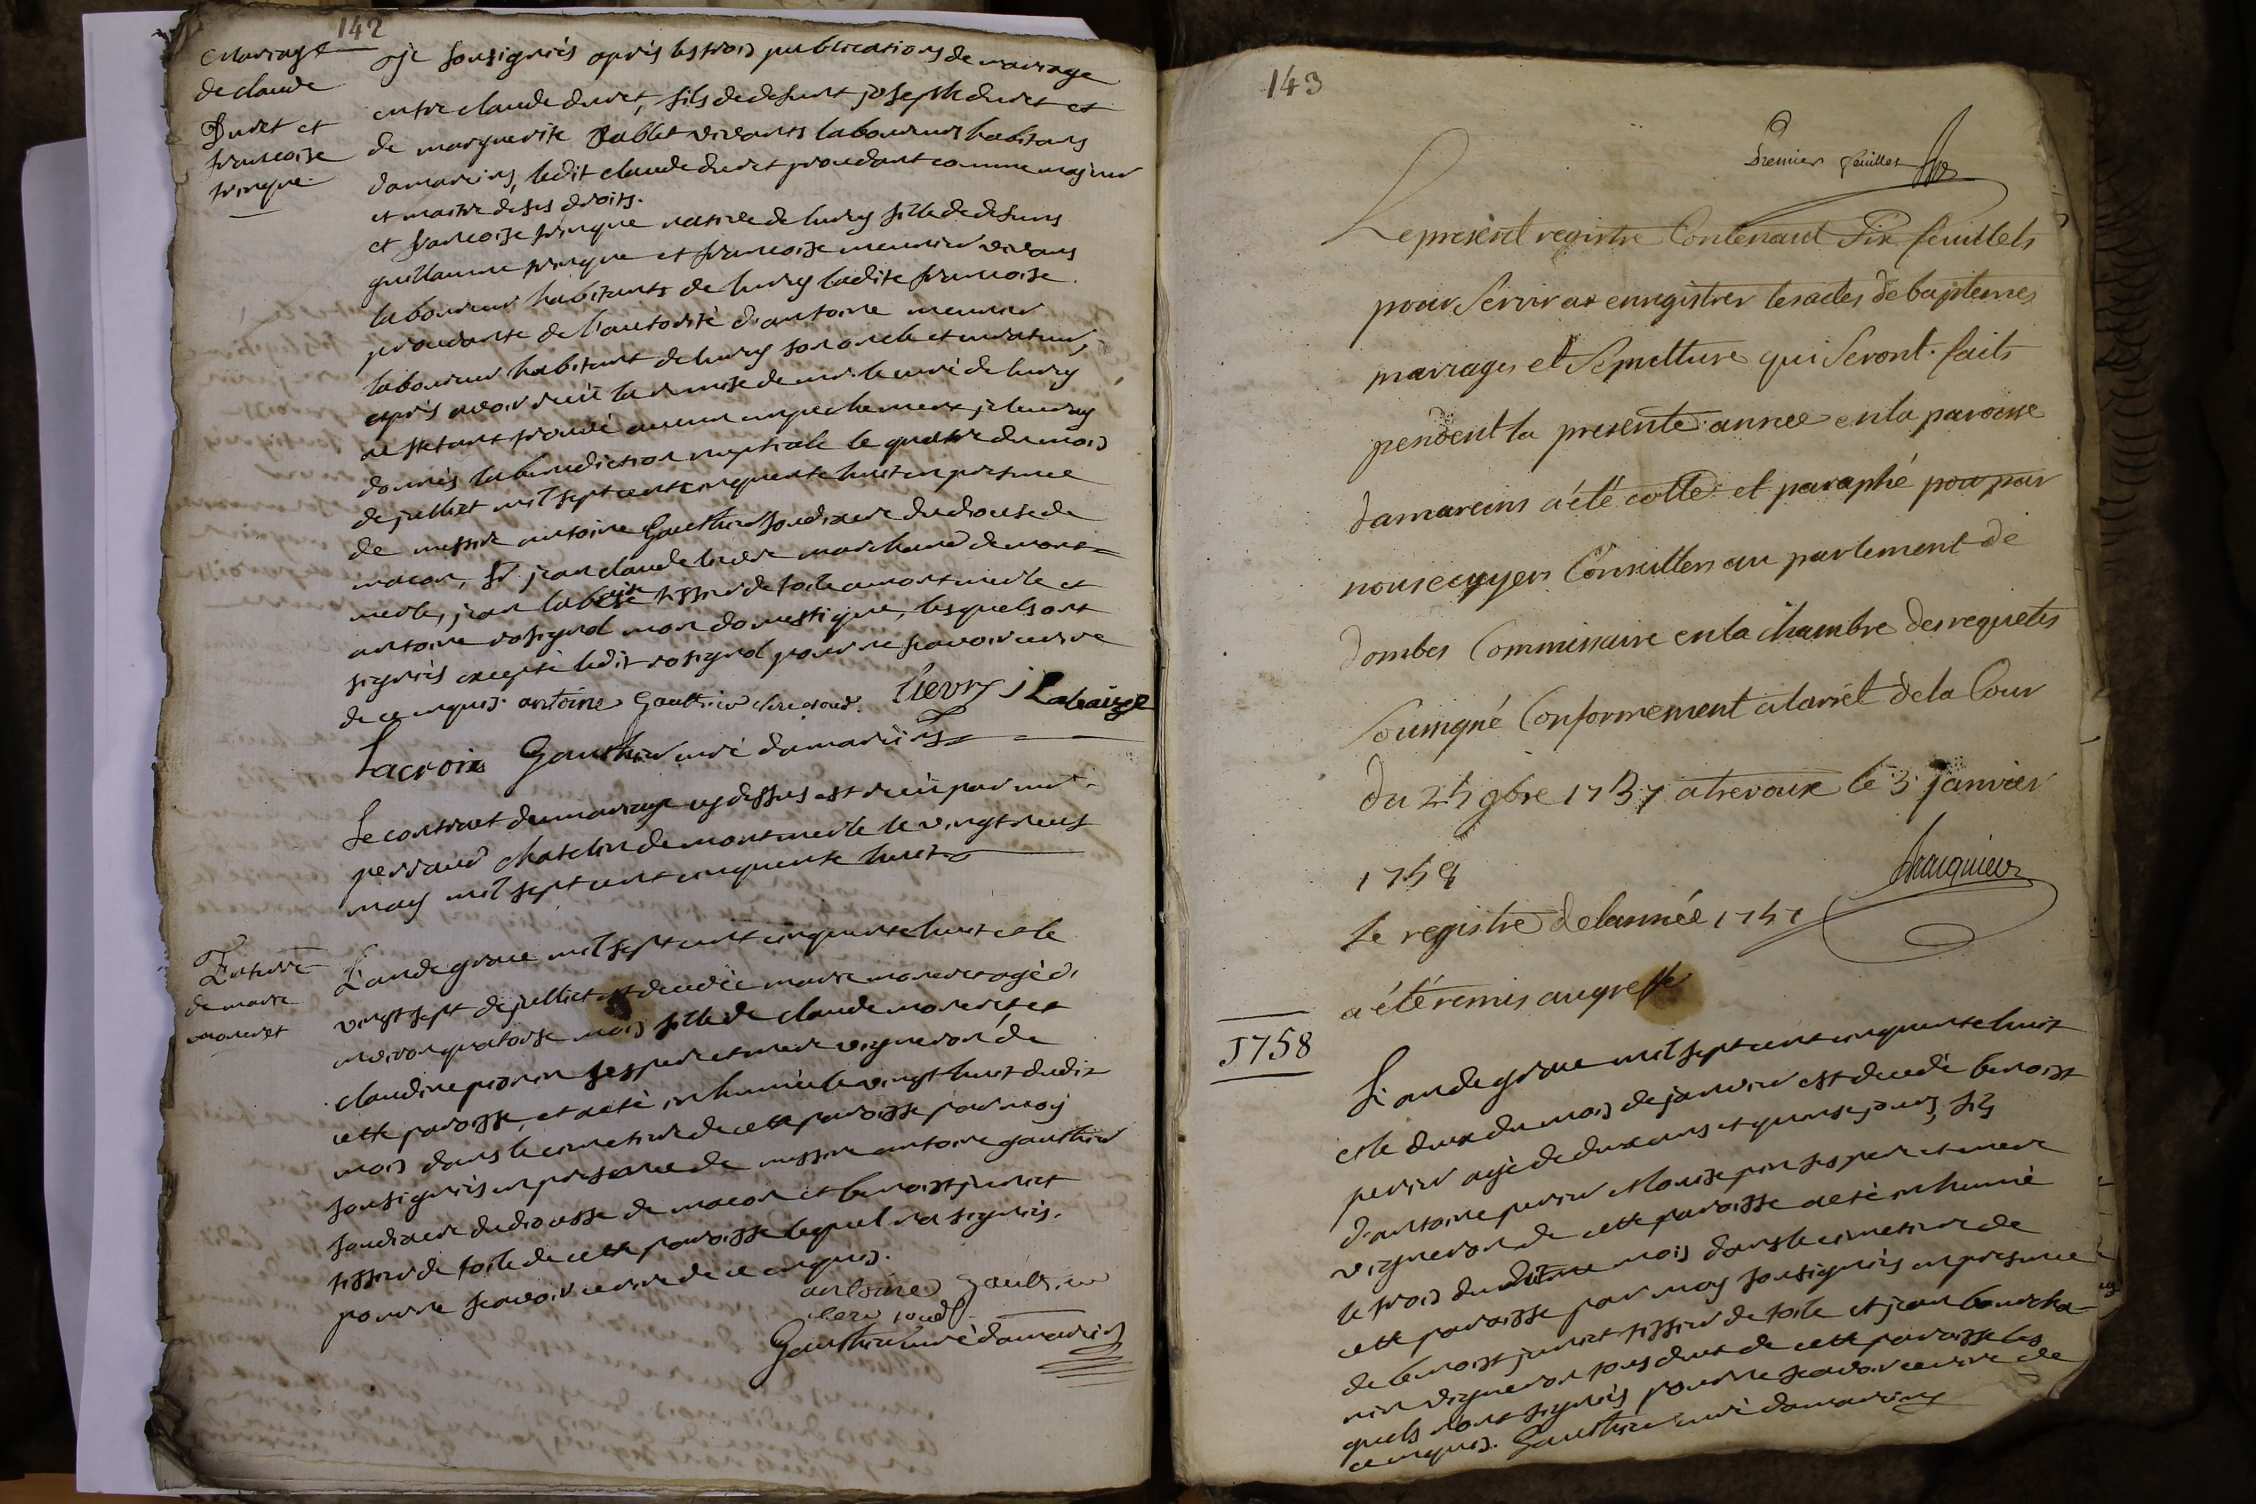 142
Mariage
de claude
Duret et
francoise
tringue
je sousignés après les trois publications de mariage
entre claude duret, fils de defunt joseph duret et
de marguerite Vablet vivants laboureurs habitans
damareins, ledit claude duret procedant comme majeur
et maitre de ses droits.
et francoise tringue native de lurcy fille de defuns
guillaume tringue et francoise meunier vivans
laboureur habitants de lurcy ladite francoise
procedante de l'autorité d'antoine meunier
laboureur habitant de lurcy son oncle et curateur,
après avoir recü la remise de mr le curé de lurcy
ne s'etant trouvé aucun empechement je leur ay
donnés la benediction nuptiale le quatre du mois
de julliet mil sept cent cinquante huit en presence
de messire antoine Gauthier soudiacre du diocese de
macon, sr jean claude marchand de mont=
merle, jean labaize tissier de toile a montmerle et
antoine rosignol mon domestique, lesquels ont
signés excepté ledit rosignol pour ne scavoir ecrire
de ce enquis. antoine Gauthier clerc soud. lievry j Labaize
Lacroix Gauthier curé damareins
Le contract du mariage cy dessus est recü par me
perraud chatelin de montmerle le vingt neuf
may mil sept cent cinquante huit
Enterre
de marie
moneret
L'an de grace mil sept cent cinquante huit et le
vingt sept de julliet est decedée marie moneret agée d'
environ quatorse mois fille de claude moneret et
claudine pionin ses pere et mere vigneron de
cette paroisse, et a eté inhumée le vingt huit dudit
mois dans le cimetiere de cette paroisse par moy
sousignés en presence de messire antoine gauthier
soudiacre du diocesse de macon et benoist junet
tissier de toile de cette paroisse lequel n'a signés.
pour ne scavoir ecrire de ce enquis.
antoine Gauthier
clerc soud
Gauthier curé damareins
143
Premier feuillet
Le present registre Contenant Six feuillets
pour Servir a enregistrer les actes de baptemes
mariages et Sepulture qui Seront faits
pendent la presente année en la paroisse
damareins a été cotté et paraphé pour par
nous ecuyer Conseillers au parlement de
dombes Commissaire en la chambre des requetes
Soussigné Conformement a larrét de la Cour
du 25 9bre 1737 a trevoux le 3 janvier
1758
Le registre de lannée 1757
a été remis au greffe
1758
L'an de grace mil sept cent cinquante huit
et le deux du mois de janvier est decedé benoist
perier agé de deux ans et quinse jours, fils
d'antoine perier et louise pin ses pere et mere
vigneron de cette paroisse a eté inhumé
le trois du meme mois dans le cimetiere de
cette paroisse par moy sousignés en presence
de benoist junet tissier de toile et jean bourcha=
nin vigneron tous deux de cette paroisse les
quels n'ont signés pour ne scavoir ecrire de
ce enquis. Gauthier curé damareins